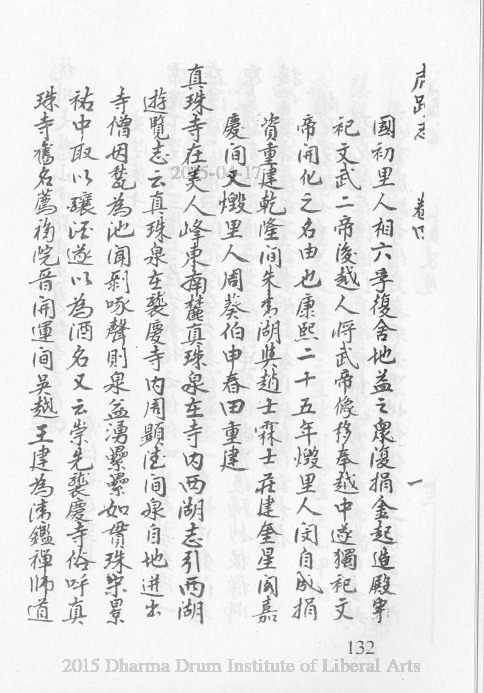 虎跑志 卷四 一
國初里人相六孚復舍地益之衆復捐金起造殿宇
祀文武二帝後越人将武帝像移奉越中遂獨祀文
帝開化之名由也康熙二十五年燬里人闵自成捐
资重建乾隆间朱青湖與趙士霖士莊建奎星阁嘉
慶间又燬里人周葵伯申春田重建
真珠寺在美人峰東南麓真珠泉在寺内西湖志引西湖
遊覽志云真珠泉在褒慶寺内周顯德间泉自地迸出
寺僧因甃為池闻剥啄聲則泉益湧纍纍如貫珠宋景
祐中取以釀酒遂以為酒名又云崇先褒慶寺俗呼真
珠寺舊名薦福院晋開運间吴越王建為清鑑禪师道
2015-09-17
132
2015 Dharma Drum Institute of Liberal Arts